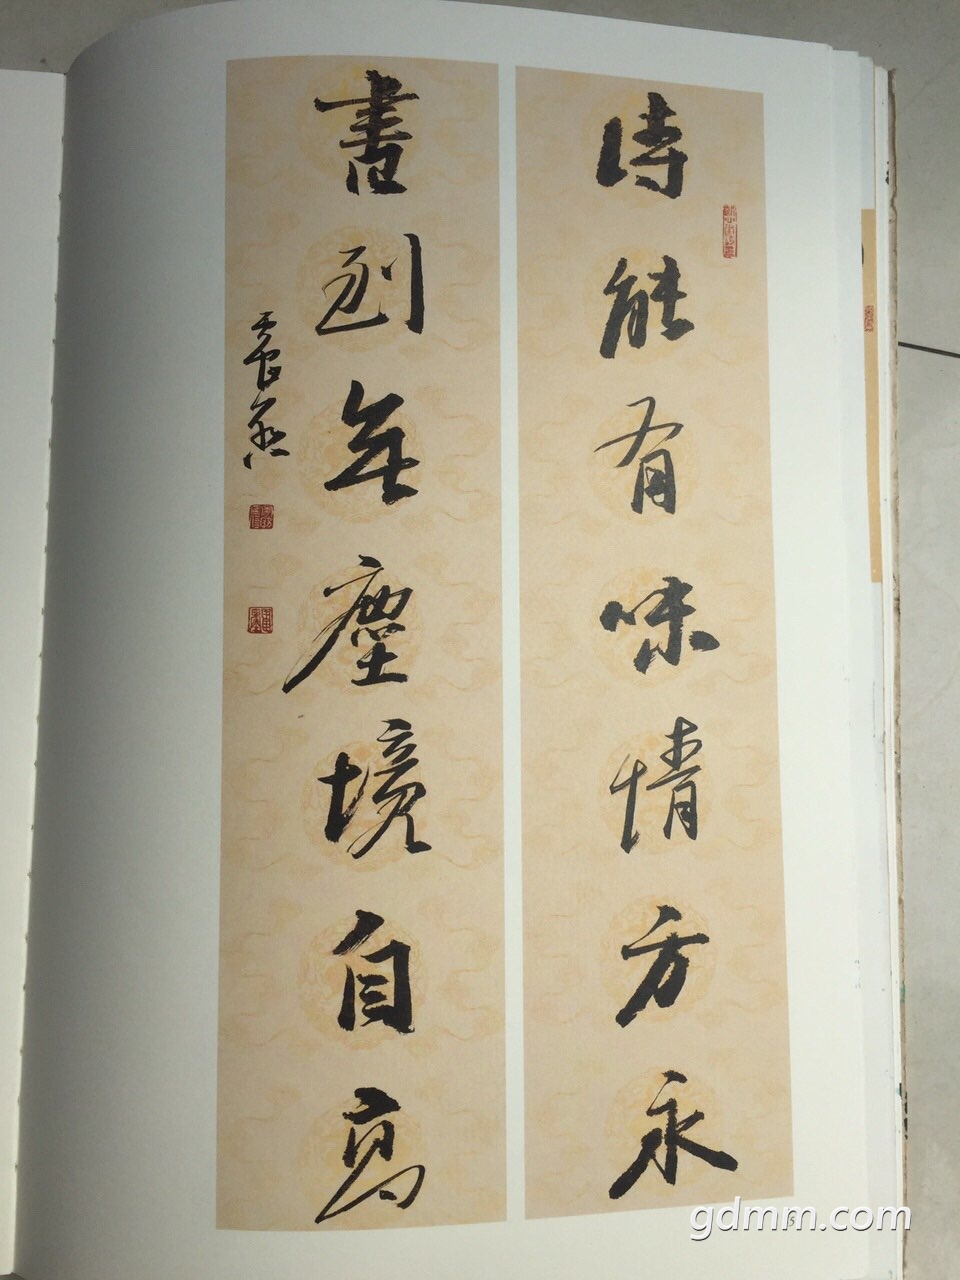 诗能有味情方永
書到無塵境自高
gdmm.com
15